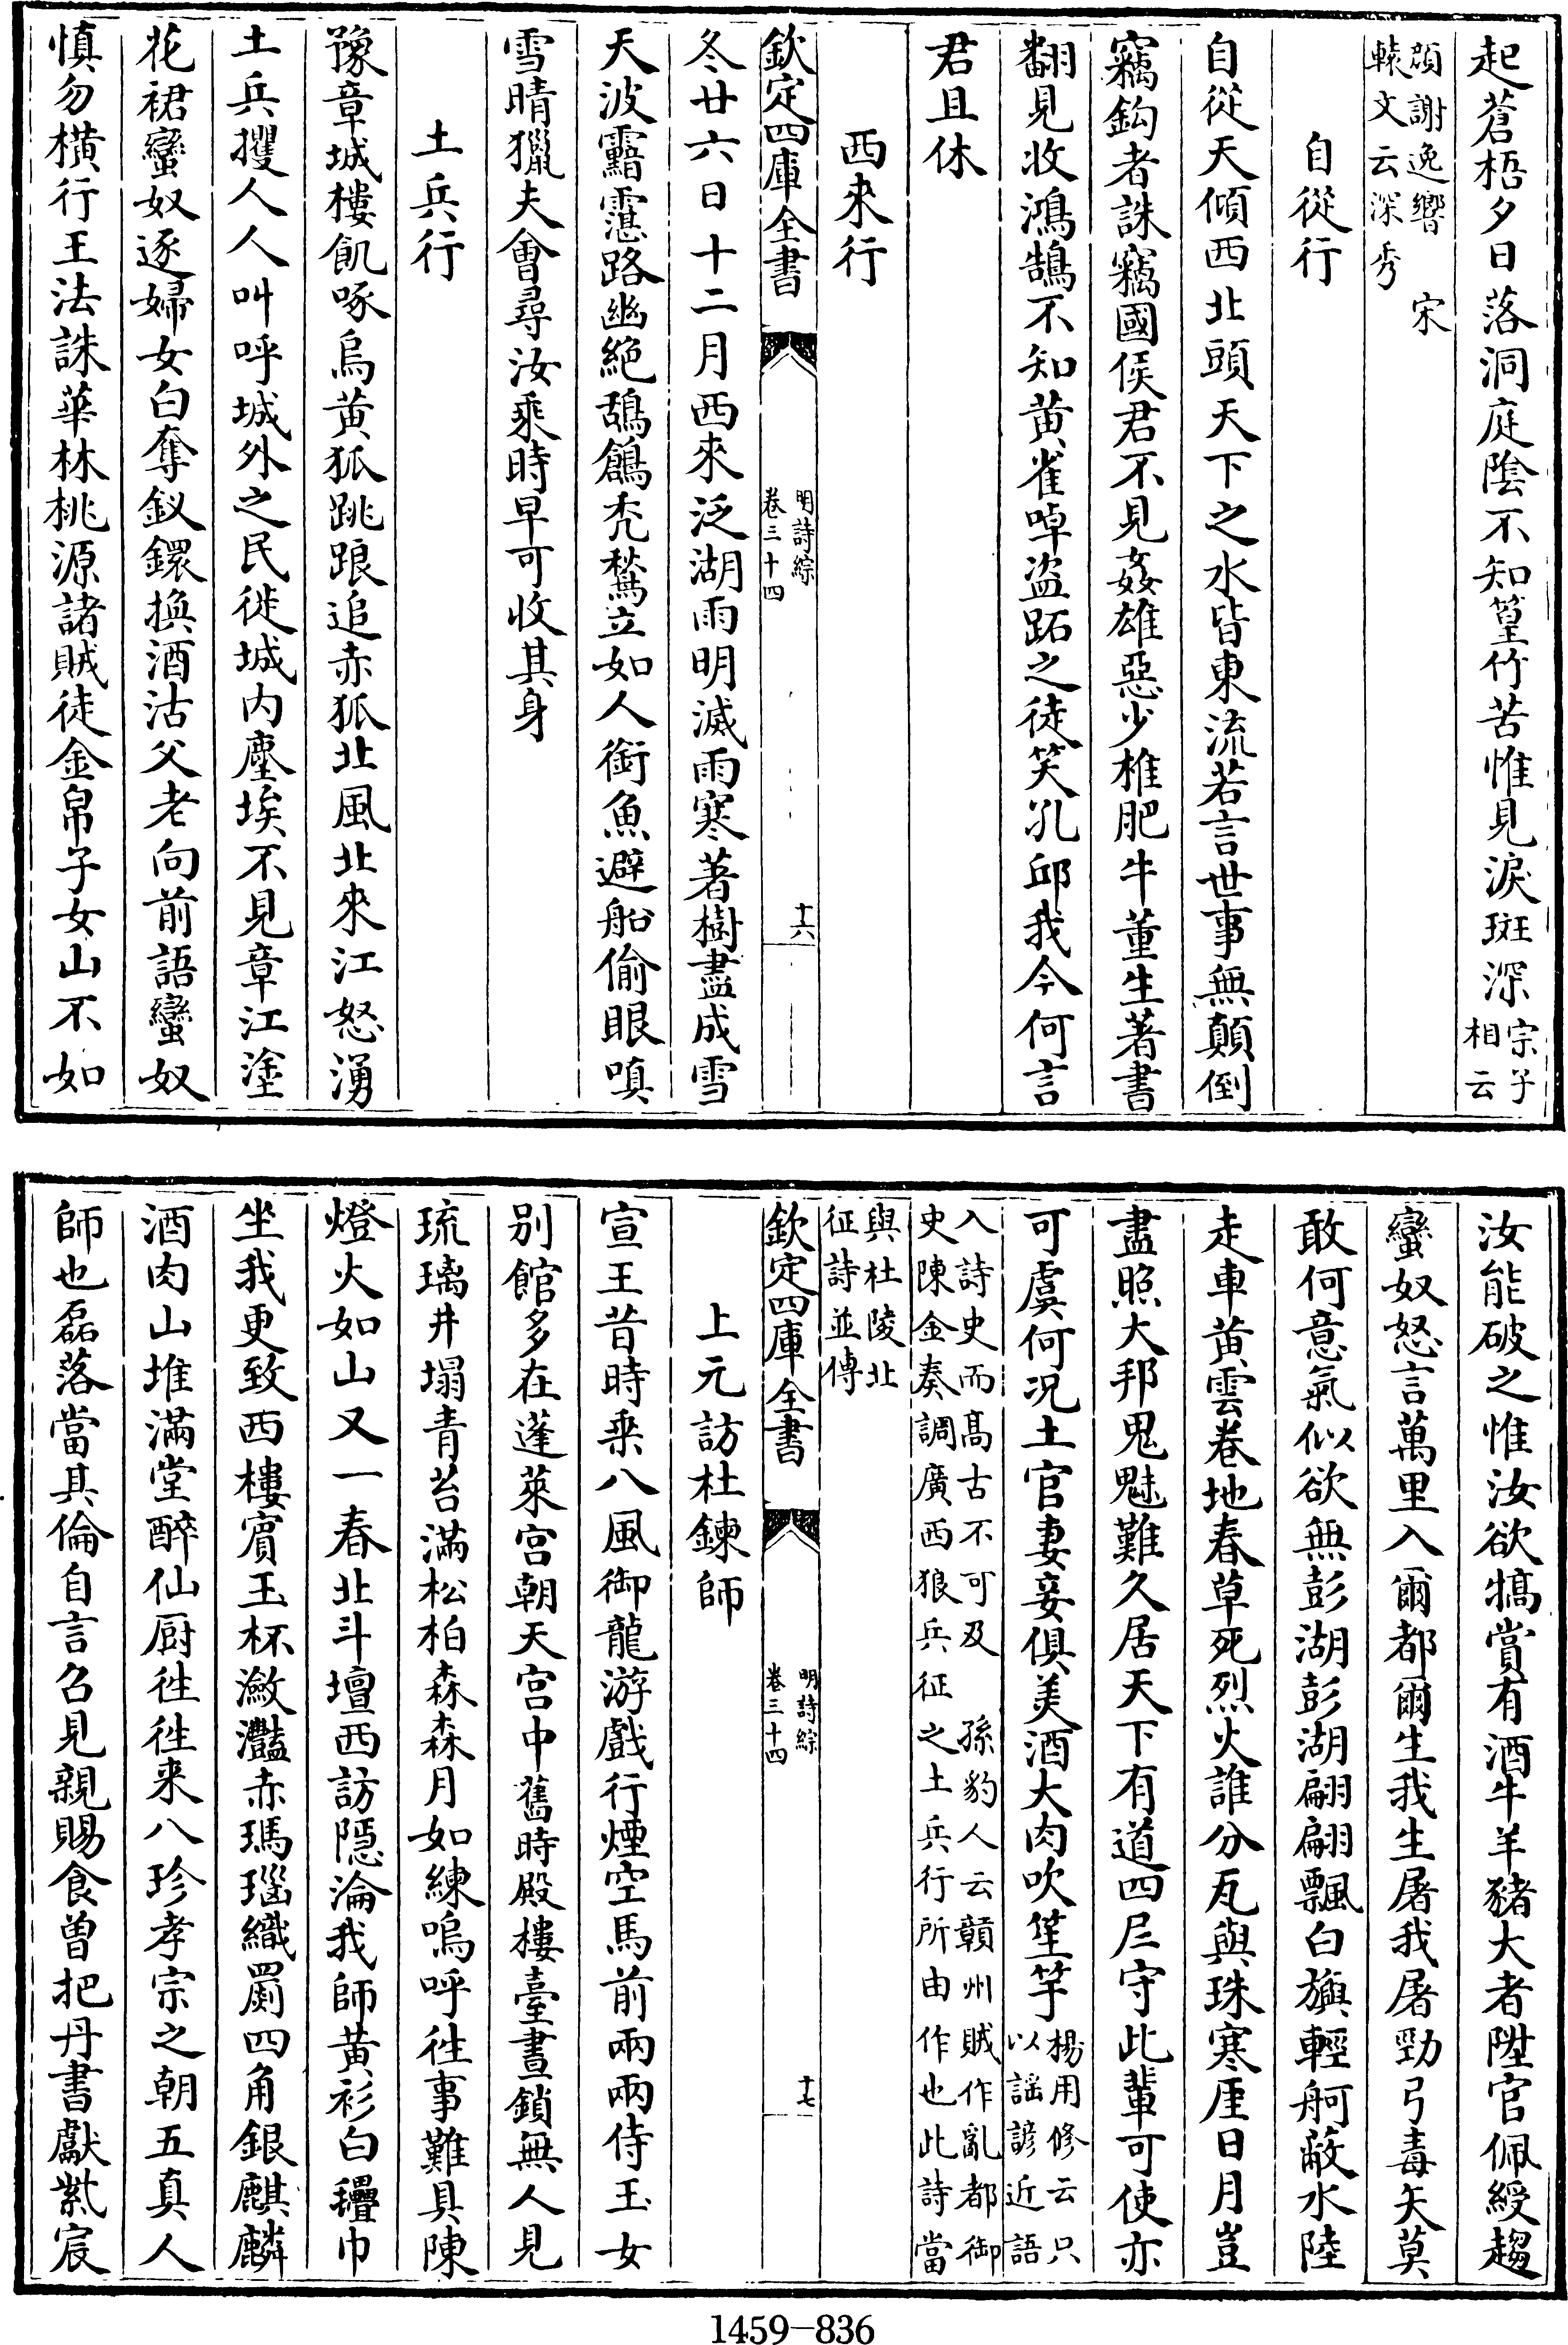 起蒼梧夕日落洞庭陰不知篁竹苦惟見淚斑深宗子相云
顔謝逸響　宋轅文云深秀
自從行
自從天傾西北頭天下之水皆東流若言世事無顛倒
竊鈎者誅竊國侯君不見姦雄惡少椎肥牛董生著書
翻見收鴻鵠不知黄雀啅盜跖之徒笑孔邱我今何言
君且休
西來行
欽定四庫全書　明詩綜卷三十四　十六
冬廿六日十二月西來泛湖雨明滅雨寒著樹盡成雪
天波霮靆路幽絶鵚鶬禿鶖立如人銜魚避船偷眼嗔
雪晴獵夫會尋汝乘時早可收其身
土兵行
豫章城樓飢啄烏黄狐跳踉追赤狐北風北來江怒湧
土兵攫人人叫呼城外之民徙城内塵埃不見章江塗
花裙蠻奴逐婦女白奪釵鐶換酒沽父老向前語蠻奴
慎勿横行王法誅華林桃源諸賊徒金帛子女山不如
汝能破之惟汝欲犒賞有酒牛羊豬大者陞官佩綬趨
蠻奴怒言萬里入爾都爾生我生屠我屠勁弓毒矢莫
敢何意氣似欲無彭湖彭湖翩翩飄白旟輕舸蔽水陸
走車黄雲卷地春草死烈火誰分瓦與珠寒厓日月豈
盡照大邦鬼魅難久居天下有道四夷守此輩可使亦
可虞何况土官妻妾俱美酒大肉吹笙竽楊用修云只以謡諺近語
入詩史而髙古不可及　孫豹人云贛州賊作亂都御史陳金奏調廣西狼兵征之土兵行所由作也此詩當
與杜陵北征詩並傳
欽定四庫全書　明詩綜卷三十四　十七
上元訪杜鍊師
宣王昔時乗八風御龍游戲行煙空馬前兩兩侍玉女
别館多在蓬萊宫朝天宫中舊時殿樓臺晝鎖無人見
琉璃井塌青苔滿松柏森森月如練嗚呼徃事難具陳
燈火如山又一春北斗壇西訪隱淪我師黄衫白㲲巾
坐我更致西樓賔玉杯瀲灔赤瑪瑙織罽四角銀麒麟
酒肉山堆滿堂醉仙厨徃徃来八珍孝宗之朝五真人
師也磊落當其倫自言召見親賜食曽把丹書獻紫宸
1459-836